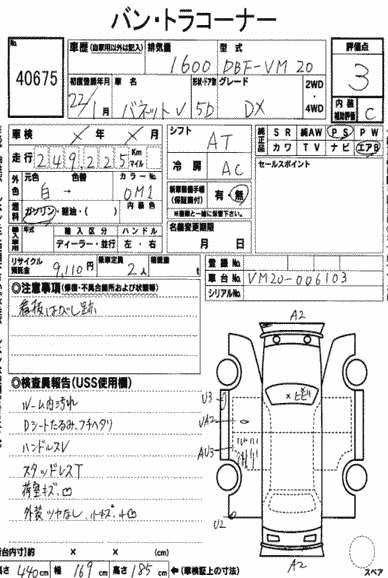 バン・トラコーナー
No.
40675
車歴 (自家用以外は記入) 排気量 1600 型式 DBF-VM20
評価点
3
内装補助評価 C
初度登録年月 22/1月 車名 バネットV 形状・ドア数 5D グレード DX 2WD・4WD
車検 × 年 × 月
走行 249,225 Km マイル
シフト AT
冷房 AC
純正品 SR 純AW PS PW
カワ TV ナビ エアB
セールスポイント
外色 元色 白 → 色替 カラーNo. OM1
燃料 ガソリン・軽油・( ) 内装色
新車整備手帳(保証書付) 有・無
※書類と一緒に保管下さい
輸入車用 年式 輸入区分 ハンドル
ディーラー・並行 左・右
名義変更期限
月 日
リサイクル預託金 9,110円 乗車定員 2人 積載量 t
登録No.
車台No. VM20-006103
シリアルNo.
◎注意事項(修復・不具合箇所および状態等)
看板はがし跡
◎検査員報告(USS使用欄)
ルーム内汚れ
Dシートたるみ、フチヘタリ
ハンドルスレ
スタッドレスT
荷室キズ、凹
外装ツヤなし、小キズ・小凹
A2
×ヒビ
U3
UA2
AU3
U2
A2
スペア
荷台内寸)約 × × (cm)
長さ 440cm 幅 169cm 高さ 185cm ←(車検証上の寸法)